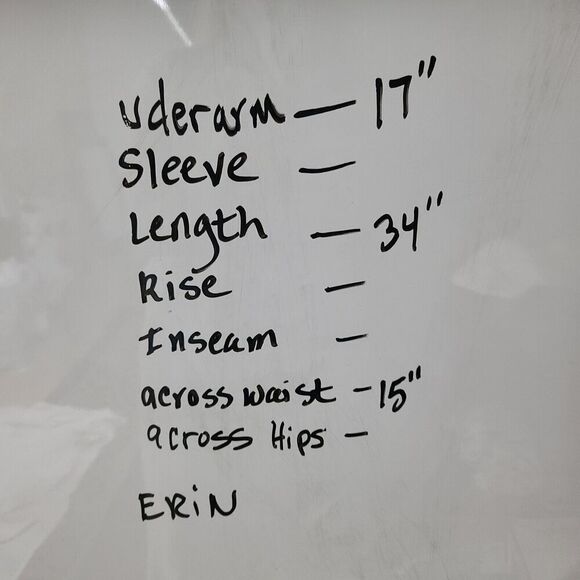 uderarm — 17"
Sleeve —
Length — 34"
Rise —
Inseam —
across waist — 15"
across Hips —
ERiN